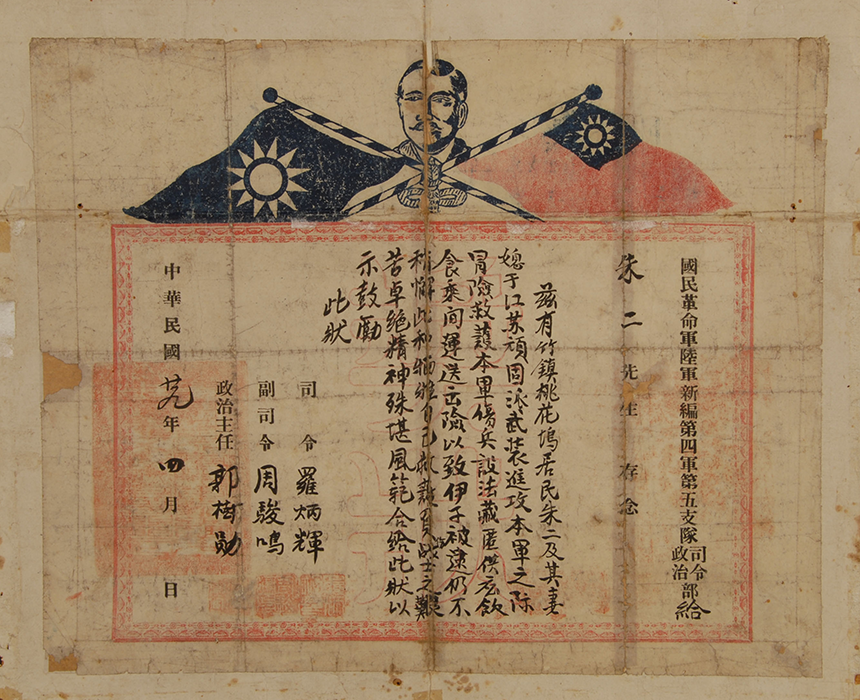 國民革命軍陸軍新編第四軍第五支隊司令政治部給
朱二先生存念
茲有竹鎮桃花塢居民朱二及其妻
媳于江苏頑固派武装進攻本軍之际
冒險救護本軍傷兵設法藏匿供应飲
食乘间運送出險以致伊子被逮仍不
稍懈此种牺牲自己救護战士之艱
苦卓绝精神殊堪風範合給此狀以
示鼓勵
此狀
司令 羅炳輝
副司令 周駿鳴
政治主任 郭樹勋
中華民國廿九年四月 日